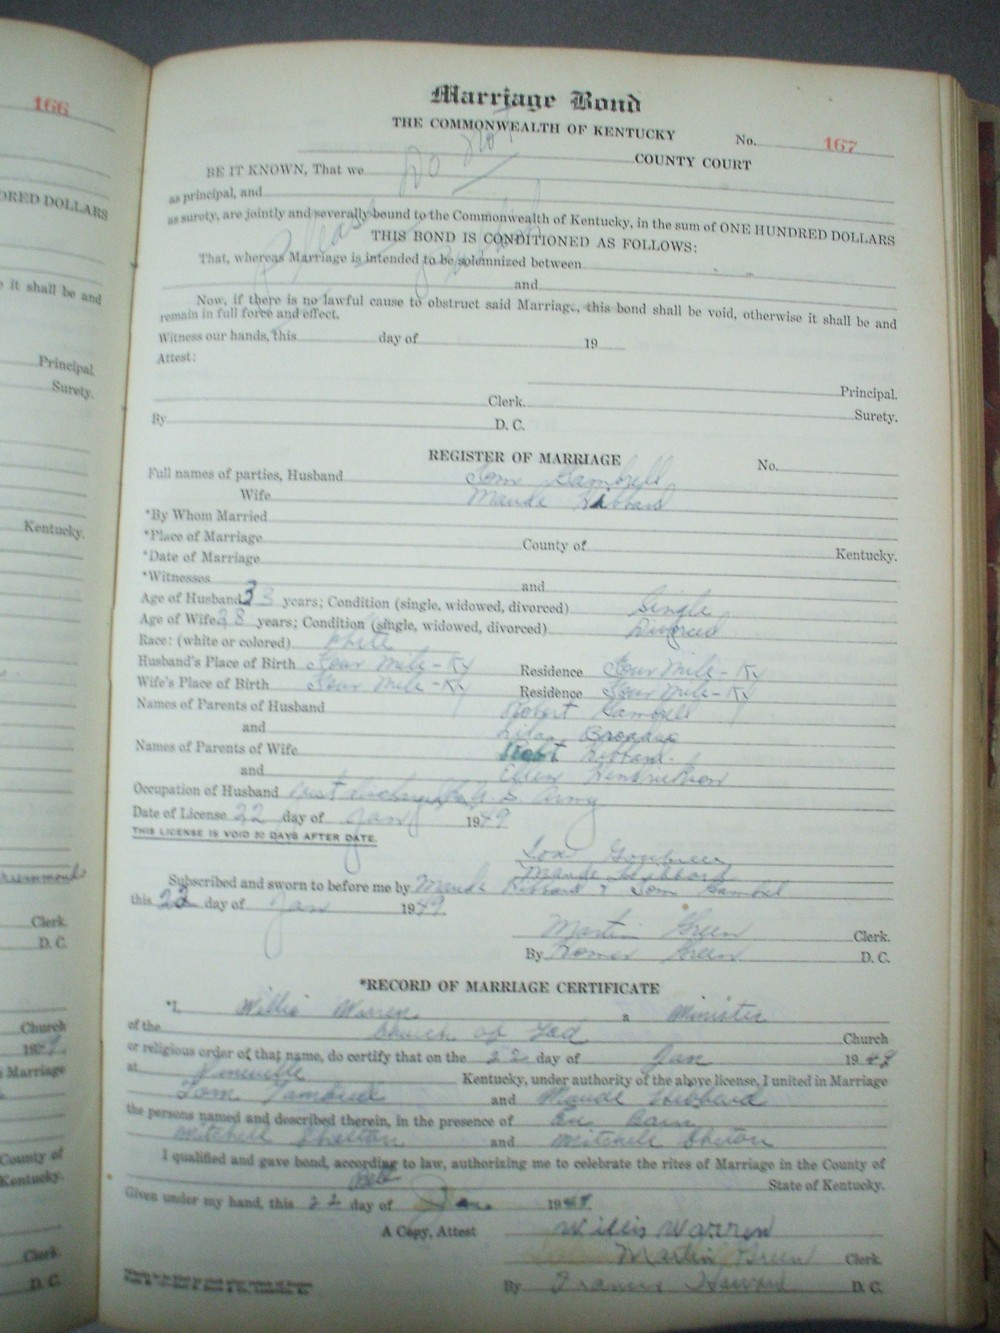 166
Marriage Bond
THE COMMONWEALTH OF KENTUCKY No. 167
COUNTY COURT
Do not
BE IT KNOWN, That we
as principal, and
as surety, are jointly and severally bound to the Commonwealth of Kentucky, in the sum of ONE HUNDRED DOLLARS
Please Publish
THIS BOND IS CONDITIONED AS FOLLOWS:
That, whereas Marriage is intended to be solemnized between
and
Now, if there is no lawful cause to obstruct said Marriage, this bond shall be void, otherwise it shall be and
remain in full force and effect.
Witness our hands, this day of 19
Attest:
Principal.
Clerk.
Surety.
By D. C.
REGISTER OF MARRIAGE No.
Full names of parties, Husband Tom Gambrell
Wife Maude Hibbard
*By Whom Married
*Place of Marriage County of Kentucky.
*Date of Marriage
*Witnesses and
Age of Husband 33 years; Condition (single, widowed, divorced) Single
Age of Wife 28 years; Condition (single, widowed, divorced) Divorced
Race: (white or colored) White
Husband's Place of Birth Four Mile - Ky Residence Four Mile - Ky
Wife's Place of Birth Four Mile - Ky Residence Four Mile - Ky
Names of Parents of Husband Robert Gambrell
and
Names of Parents of Wife Robt Hibbard
and Ellen
Occupation of Husband Just U. S. Army
Date of License 22 day of Jany 1949
THIS LICENSE IS VOID 30 DAYS AFTER DATE.
Maude Hibbard
Subscribed and sworn to before me by Maude Hibbard & Tom Gambrel
this 22 day of Jan 1949.
Martin Green Clerk.
By Homer Green D. C.
*RECORD OF MARRIAGE CERTIFICATE
*I, Willis Warren a Minister
of the Church of God Church
or religious order of that name, do certify that on the 22 day of Jan 1949
at Pineville Kentucky, under authority of the above license, I united in Marriage
Tom and Maude Hibbard
the persons named and described therein, in the presence of
Mitchell Shelton and Mitchell
I qualified and gave bond, according to law, authorizing me to celebrate the rites of Marriage in the County of
Bell State of Kentucky.
Given under my hand, this 22 day of Jan. 1949.
A Copy, Attest Willis Warren
Martin Green Clerk
By Francis D. C.